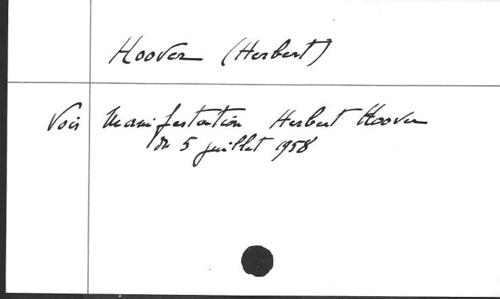 Hoover (Herbert)
Voir Manifestation Herbert Hoover
du 5 juillet 1958